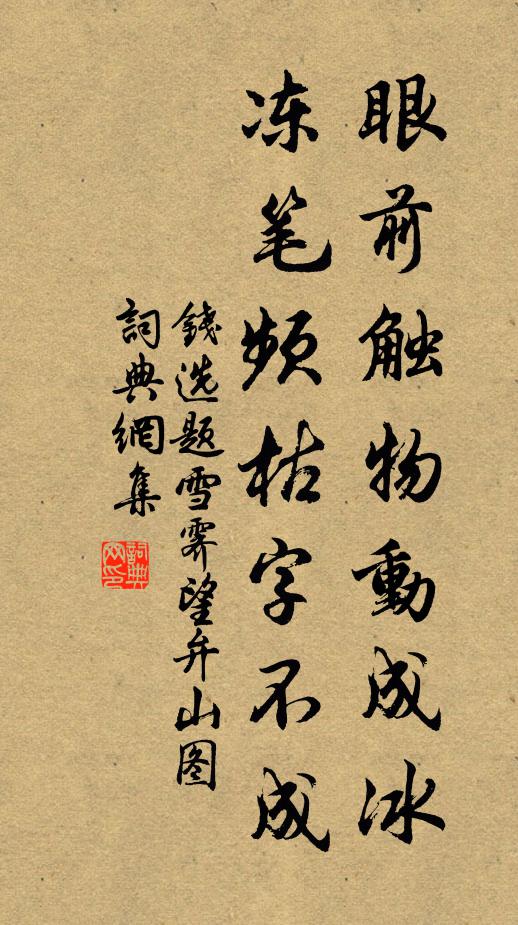 眼前触物動成冰
冻笔频枯字不成
錢选题雪霁望弁山图
詞典網集
詞典網印